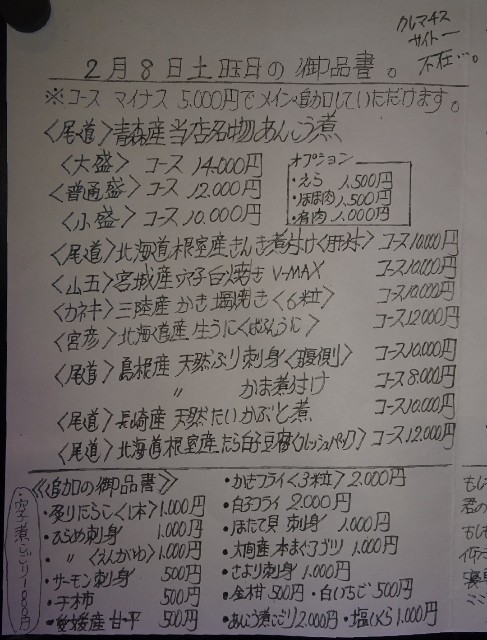 クレマチス
サイトー
不在…。
2月8日土曜日の御品書。
※コース マイナス 5.000円でメイン追加していただけます。
〈尾道〉青森産当店名物あんこう煮
〈大盛〉コース 14.000円
〈普通盛〉コース 12.000円
〈小盛〉コース 10.000円
オプション
・えら 1,500円
・ほほ肉 1,500円
・肩肉 1,000円
〈尾道〉北海道根室産きんき煮付け〈肝付〉コース10.000円
〈山五〉宮城産穴子白焼き V-MAX コース10.000円
〈カネキ〉三陸産かき塩焼き〈6粒〉コース10.000円
〈宮彦〉北海道産生うに〈ばふんうに〉コース12.000円
〈尾道〉島根産 天然ぶり刺身〈腹側〉コース10.000円
〃 かま煮付け コース8.000円
〈尾道〉長崎産 天然たいかぶと煮 コース10.000円
〈尾道〉北海道根室産たら白子豆腐〈クレッシュパック〉コース12.000円
《追加の御品書》
・炙りたらこ〈1本〉1.000円
・ひらめ刺身 1.000円
・〃〈えんがわ〉1.000円
・サーモン刺身 500円
・干柿 500円
・愛媛産 甘平 500円
・かきフライ〈3粒〉2.000円
・白子フライ 2.000円
・ほたて貝 刺身 1.000円
・大間産 本まぐろブツ 1.000円
・さより刺身 1.000円
・金柑 500円・白いちご 500円
・あんこう煮こごり2.000円・塩いくら 1.000円
・穴子煮こごり1.000円